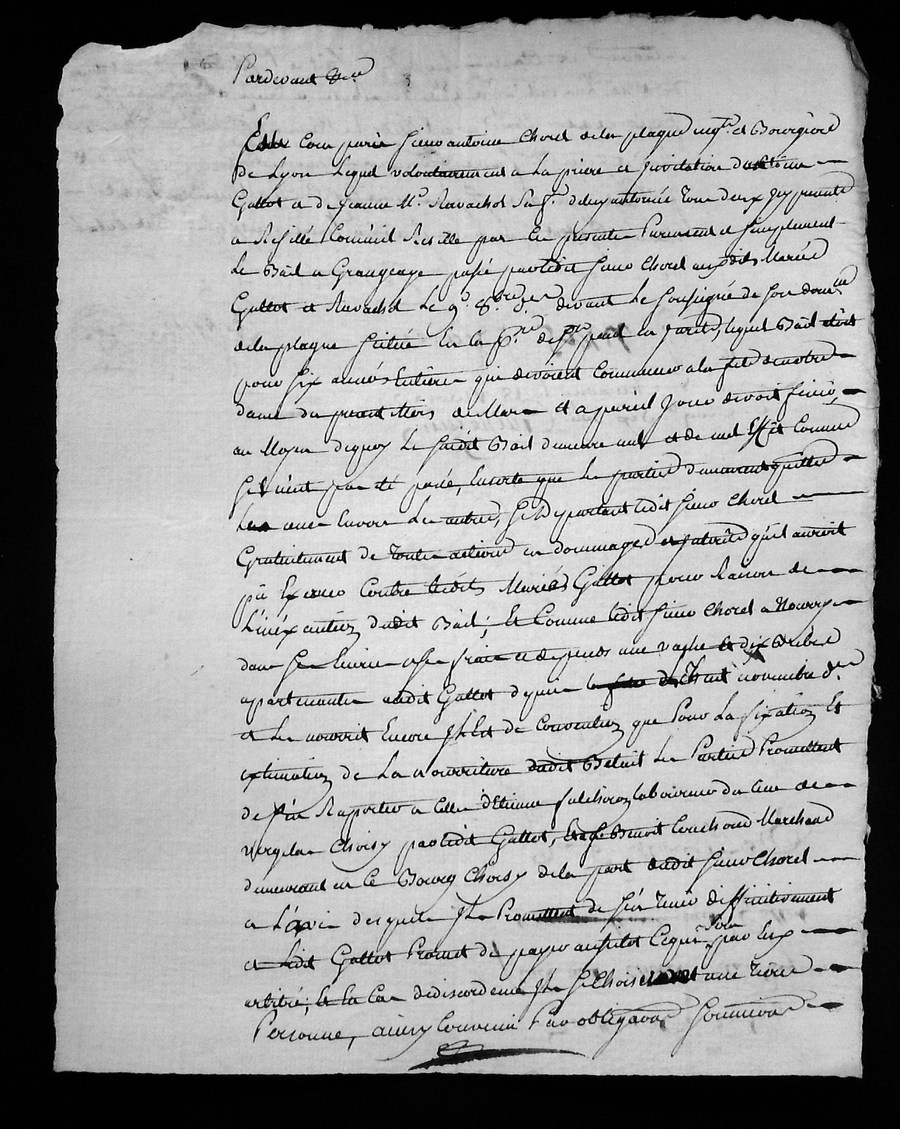 Pardevant &c.
Est Comparu Sieur antoine Chorel de la plagne neg.t et Bourgeois
De Lyon Lequel volontairement a La priere et Invitation d'
Gallot et de jeanne M.e Ravachol Sa f.e tous deux Icy presents
a Resilié Comme il Resilie par Ces presentes Purement et Simplement
Le Bail a Grangeage passé par ledit Sieur Chorel auxdits Mariés
Gallot et Ravachol Le 9.e 8.bre d.er devant Le Soussigné de Son dom.ne
de la plagne Scitué En la p.sse de en Jarest, lequel Bail étoit
pour Six années Entieres qui devoient Commencer a la fete de notre
dame du present Mois de Mars et a pareil Jour devoit finir,
au Moyen de quoy Le Susdit Bail demeure nul et de nul Effet Comme
S'il n'eut pas eté passé, En sorte que Les parties demeurent quittes
Les unes Envers Les autres, Se Departant ledit Sieur Chorel
Gratuitement de Toutes actions en dommages et interets qu'il auroit
pû Exercer Contre lesdits Mariés Gallot pour Raison de
L'inéxecution dudit Bail; Et Comme ledit Sieur Chorel a Nourry
dans Son Ecurie a Ses frais et depends une vache et dix Brebis
apartenantes audit Gallot depuis le huit novembre d.er
et Les nourrit Encore Il Est de Convention que Pour La fixation Et
estimation de La nourriture dudit Betail Les Parties Promettent
de s'en Raporter a Celle d'Etienne laboureur du lieu de
Choisy par ledit Gallot, Et a Sr Benoit Couchoud Marchand
demeurant en Ce Bourg Choisy de la part dudit Sieur Chorel
a L'avis desquels Ils Promettent de s'en Tenir Diffinitivement
et Ledit Gallot Promet de payer aussitot Ce qui Sera par Eux
arbitré, Et En Cas de discorde Ils Choisiront une Tierce
Personne, ainsy Convenu Par obligations Soumissions